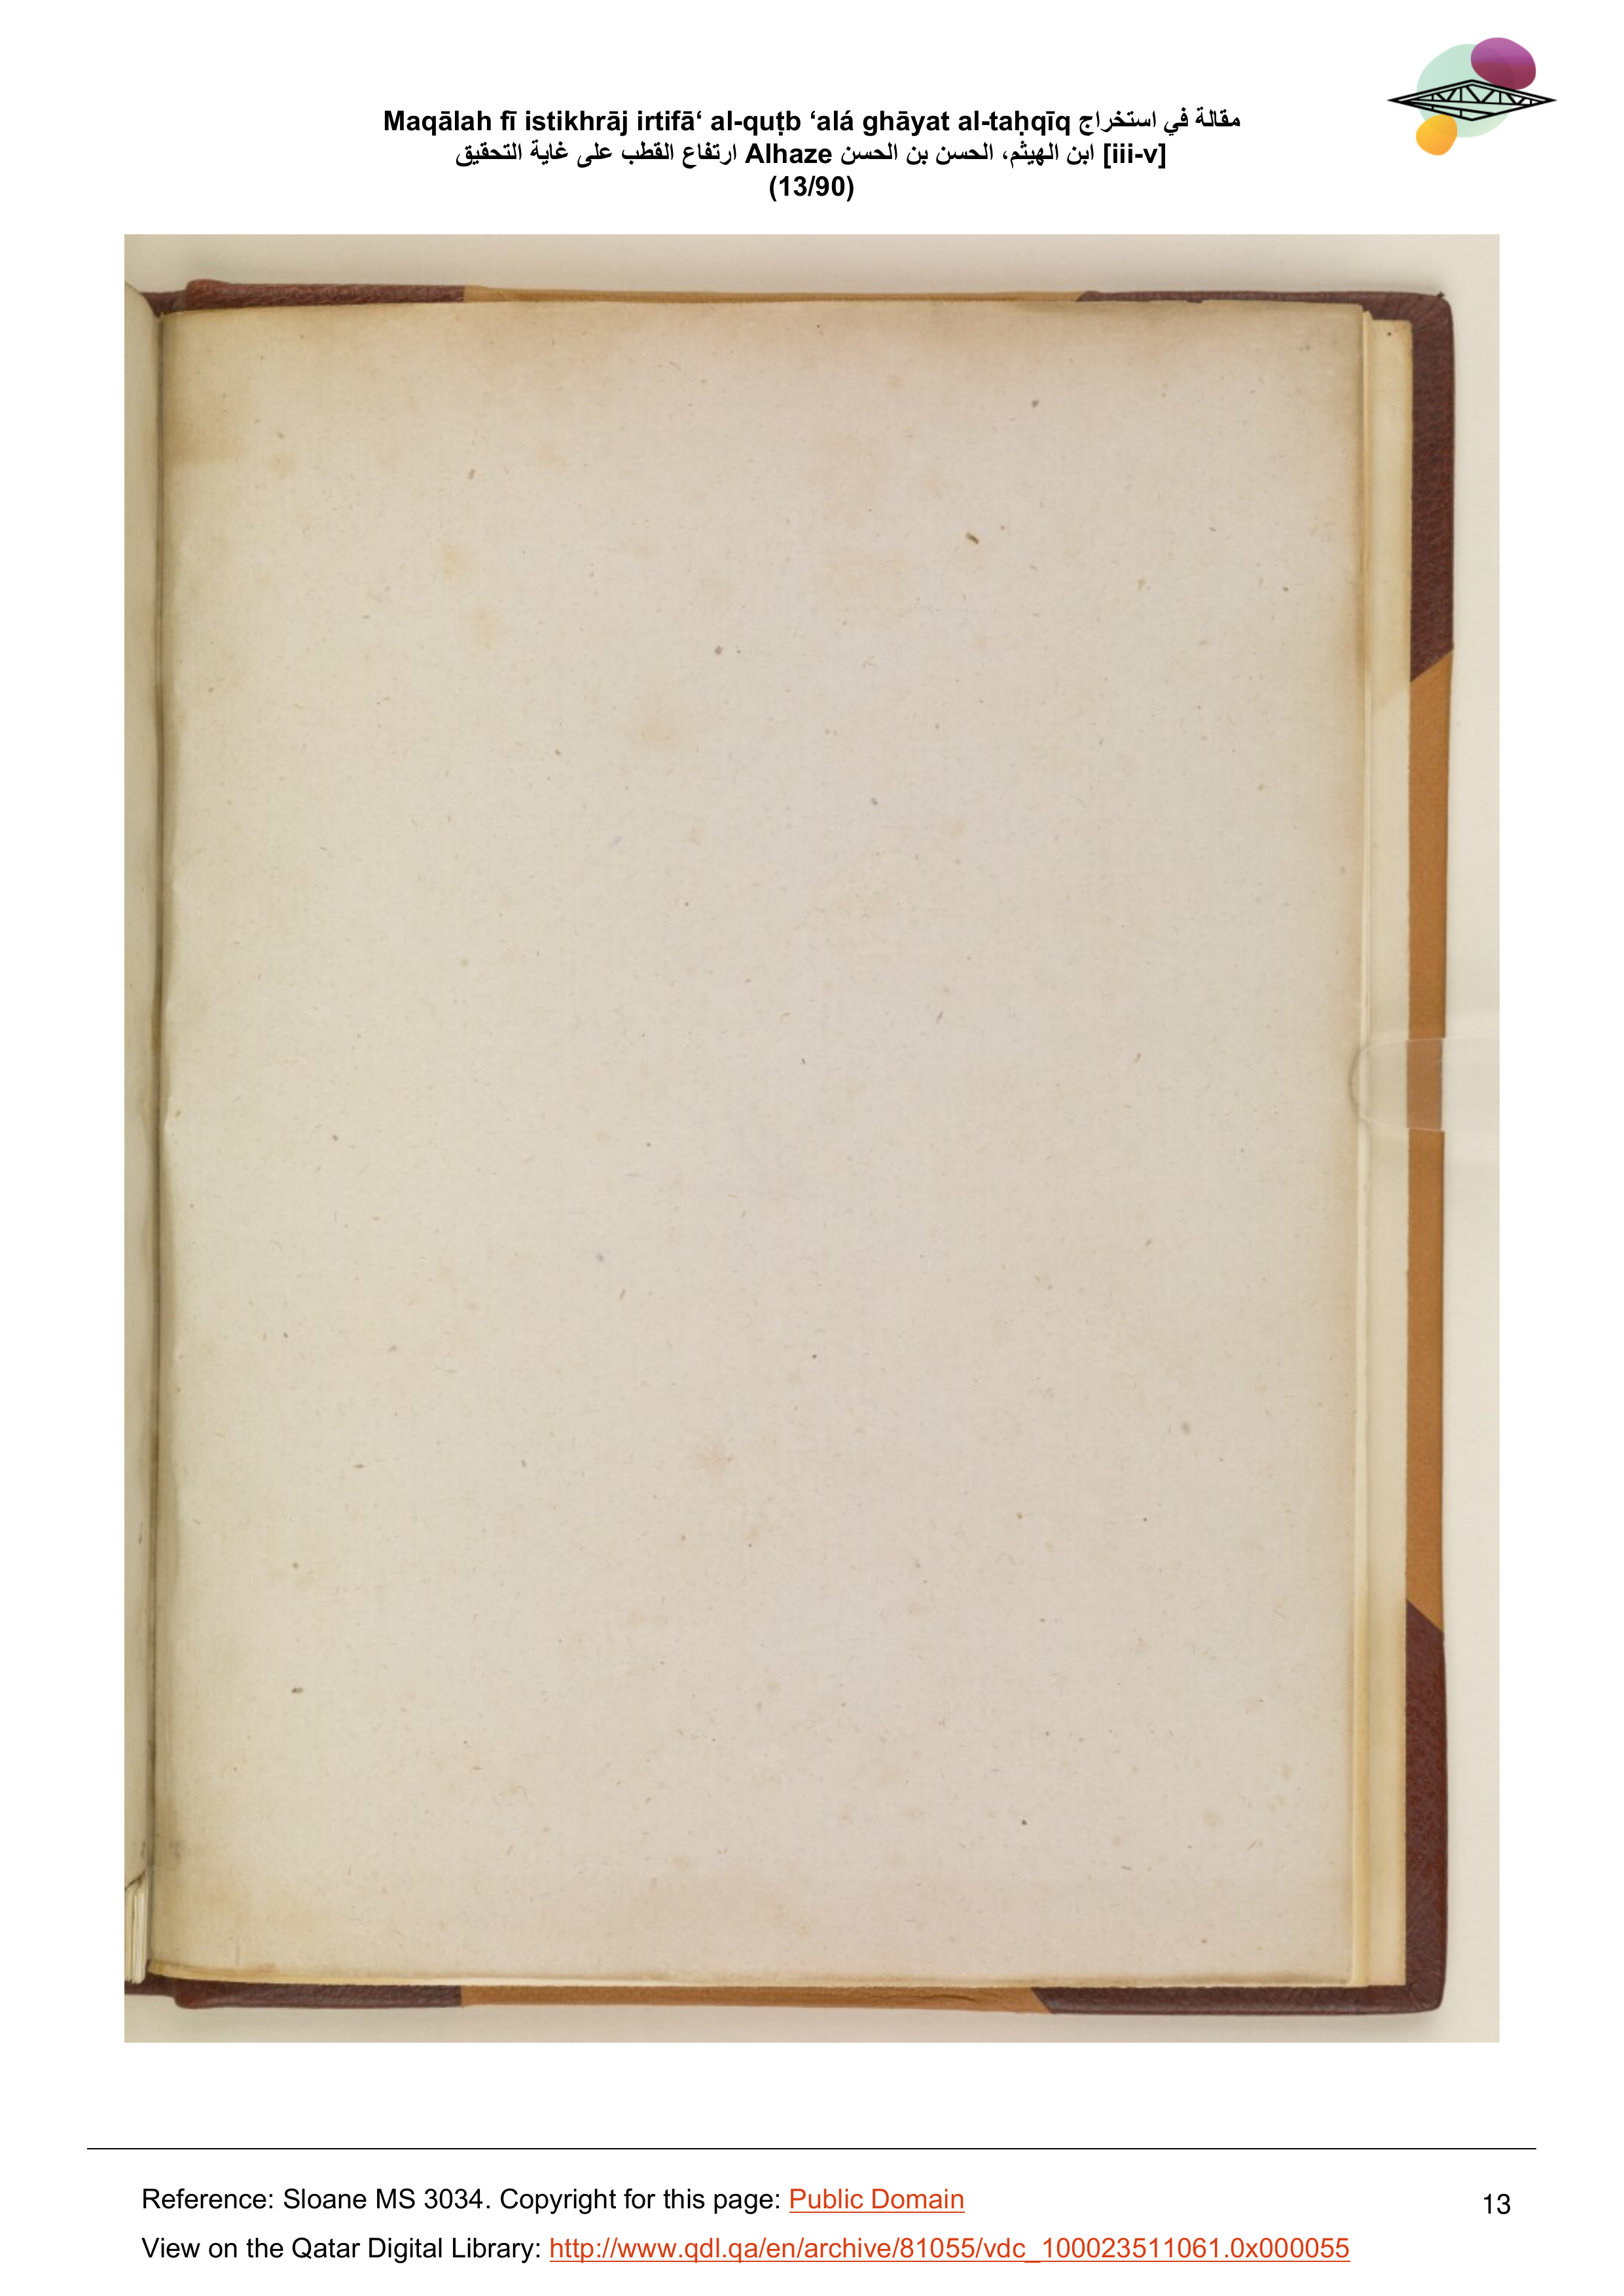 Maqālah fī istikhrāj irtifā‘ al-quṭb ‘alá ghāyat al-taḥqīq مقالة في استخراج
ارتفاع القطب على غاية التحقيق Alhaze ابن الهيثم، الحسن بن الحسن [iii-v]
(13/90)
Reference: Sloane MS 3034. Copyright for this page: Public Domain
13
View on the Qatar Digital Library: http://www.qdl.qa/en/archive/81055/vdc_100023511061.0x000055